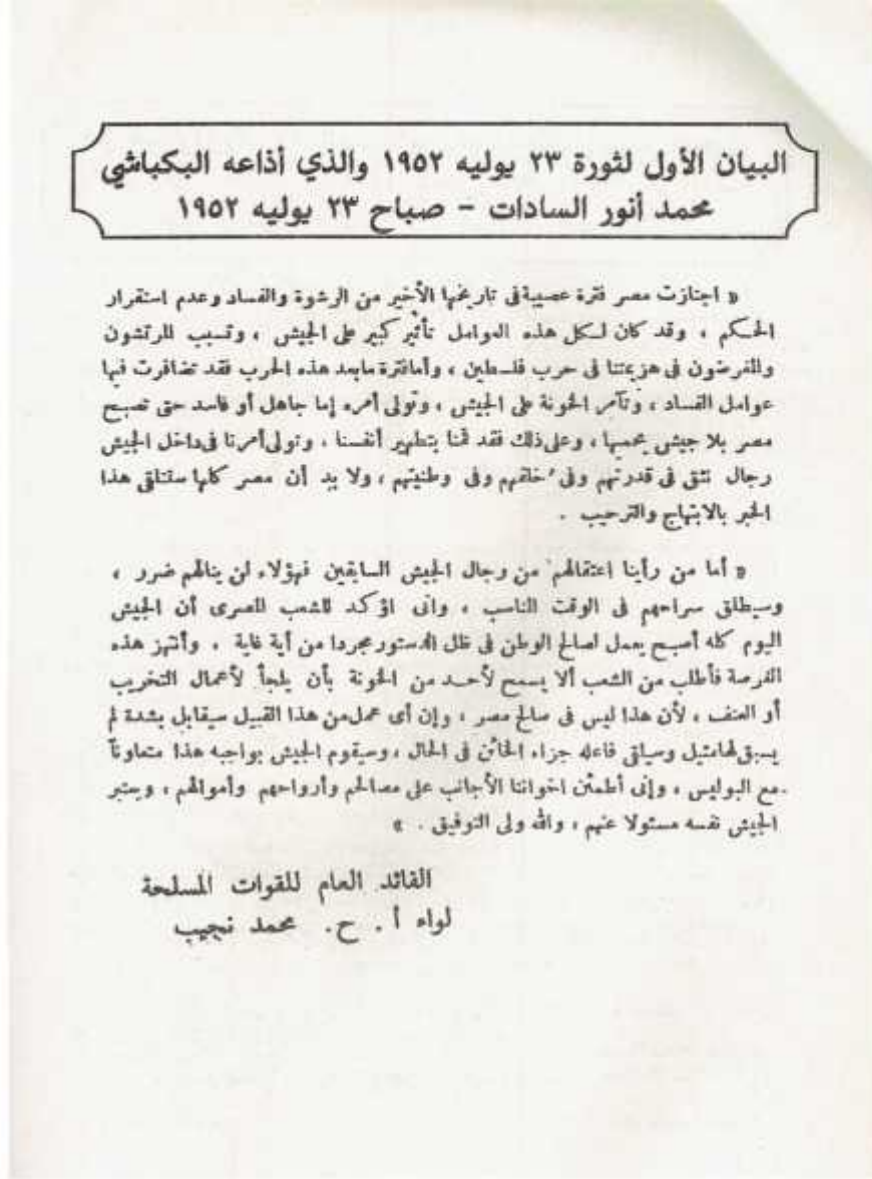 البيان الأول لثورة ٢٣ يوليه ١٩٥٢ والذي أذاعه البكباشي
محمد أنور السادات - صباح ٢٣ يوليه ١٩٥٢
« اجتازت مصر فترة عصيبة فى تاريخها الأخير من الرشوة والفساد وعدم استقرار
الحكم ، وقد كان لكل هذه العوامل تأثير كبير على الجيش ، وتسبب المرتشون
والمغرضون فى هزيمتنا فى حرب فلسطين ، وأما فترة مابعد هذه الحرب فقد تضافرت فيها
عوامل الفساد ، وتآمر الخونة على الجيش ، وتولى أمره إما جاهل أو فاسد حتى تصبح
مصر بلا جيش يحميها ، وعلى ذلك فقد قمنا بتطهير أنفسنا ، وتولى أمرنا فى داخل الجيش
رجال نثق فى قدرتهم وفى ُخلقهم وفى وطنيتهم ، ولا بد أن مصر كلها ستتلقى هذا
الخبر بالابتهاج والترحيب .
« أما من رأينا اعتقالهم من رجال الجيش السابقين فهؤلاء لن ينالهم ضرر ،
وسيطلق سراحهم فى الوقت المناسب ، وانى اؤكد للشعب المصرى أن الجيش
اليوم كله أصبح يعمل لصالح الوطن فى ظل الدستور مجردا من أية غاية . وأنتهز هذه
الفرصة فأطلب من الشعب ألا يسمح لأحد من الخونة بأن يلجأ لأعمال التخريب
أو العنف ، لأن هذا ليس فى صالح مصر ، وإن أى عمل من هذا القبيل سيقابل بشدة لم
يسبق لها مثيل وسيلقى فاعله جزاء الخائن فى الحال ، وسيقوم الجيش بواجبه هذا متعاوناً
مع البوليس ، وإنى أطمئن اخواننا الأجانب على مصالحهم وأرواحهم وأموالهم ، ويعتبر
الجيش نفسه مسئولا عنهم ، والله ولى التوفيق . »
القائد العام للقوات المسلحة
لواء أ . ح . محمد نجيب